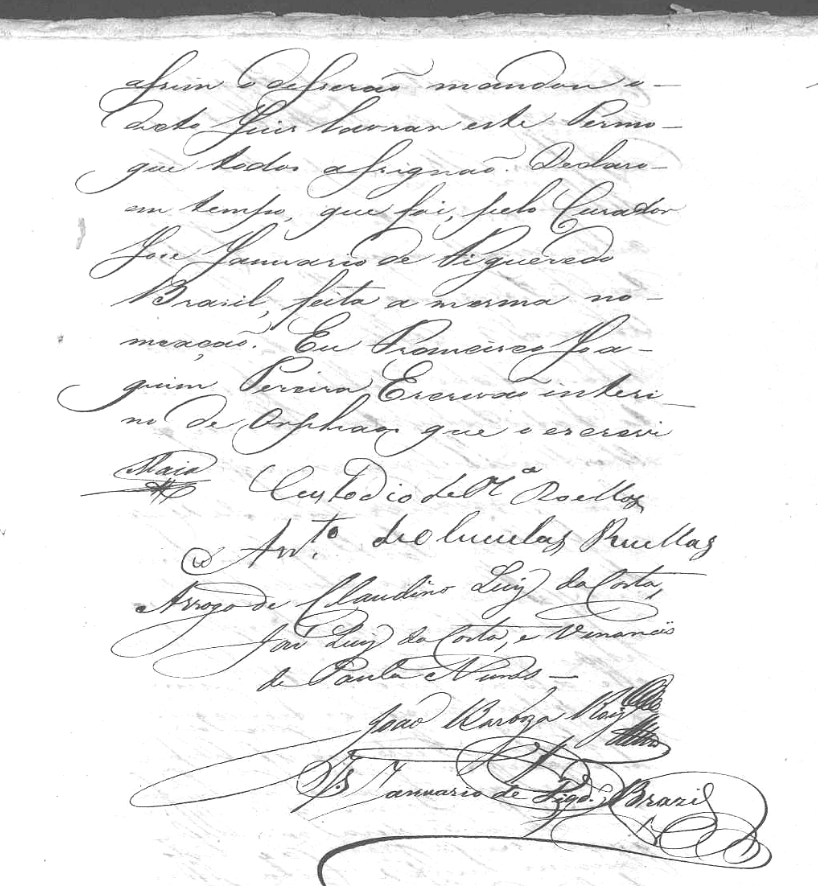 assim o disserão mandou o
dicto Juis lavrar este Termo
que todos assignão. Declaro
em tempo, que foi, pelo Curador
José Januario de Figueredo
Brazil, feita a mesma no-
meação. Eu Francisco Joa-
quim Pereira Escrivão interi-
no de Orphaos que o escrevi
Maia
Custodio de Mª Roellas
Antº de Ruellas
Arrogo de Claudino Luiz da Costa,
José Luiz da Costa, e Venancio
de Paula Nunes,
João Barboza
Js Januario de Figdo Brazil